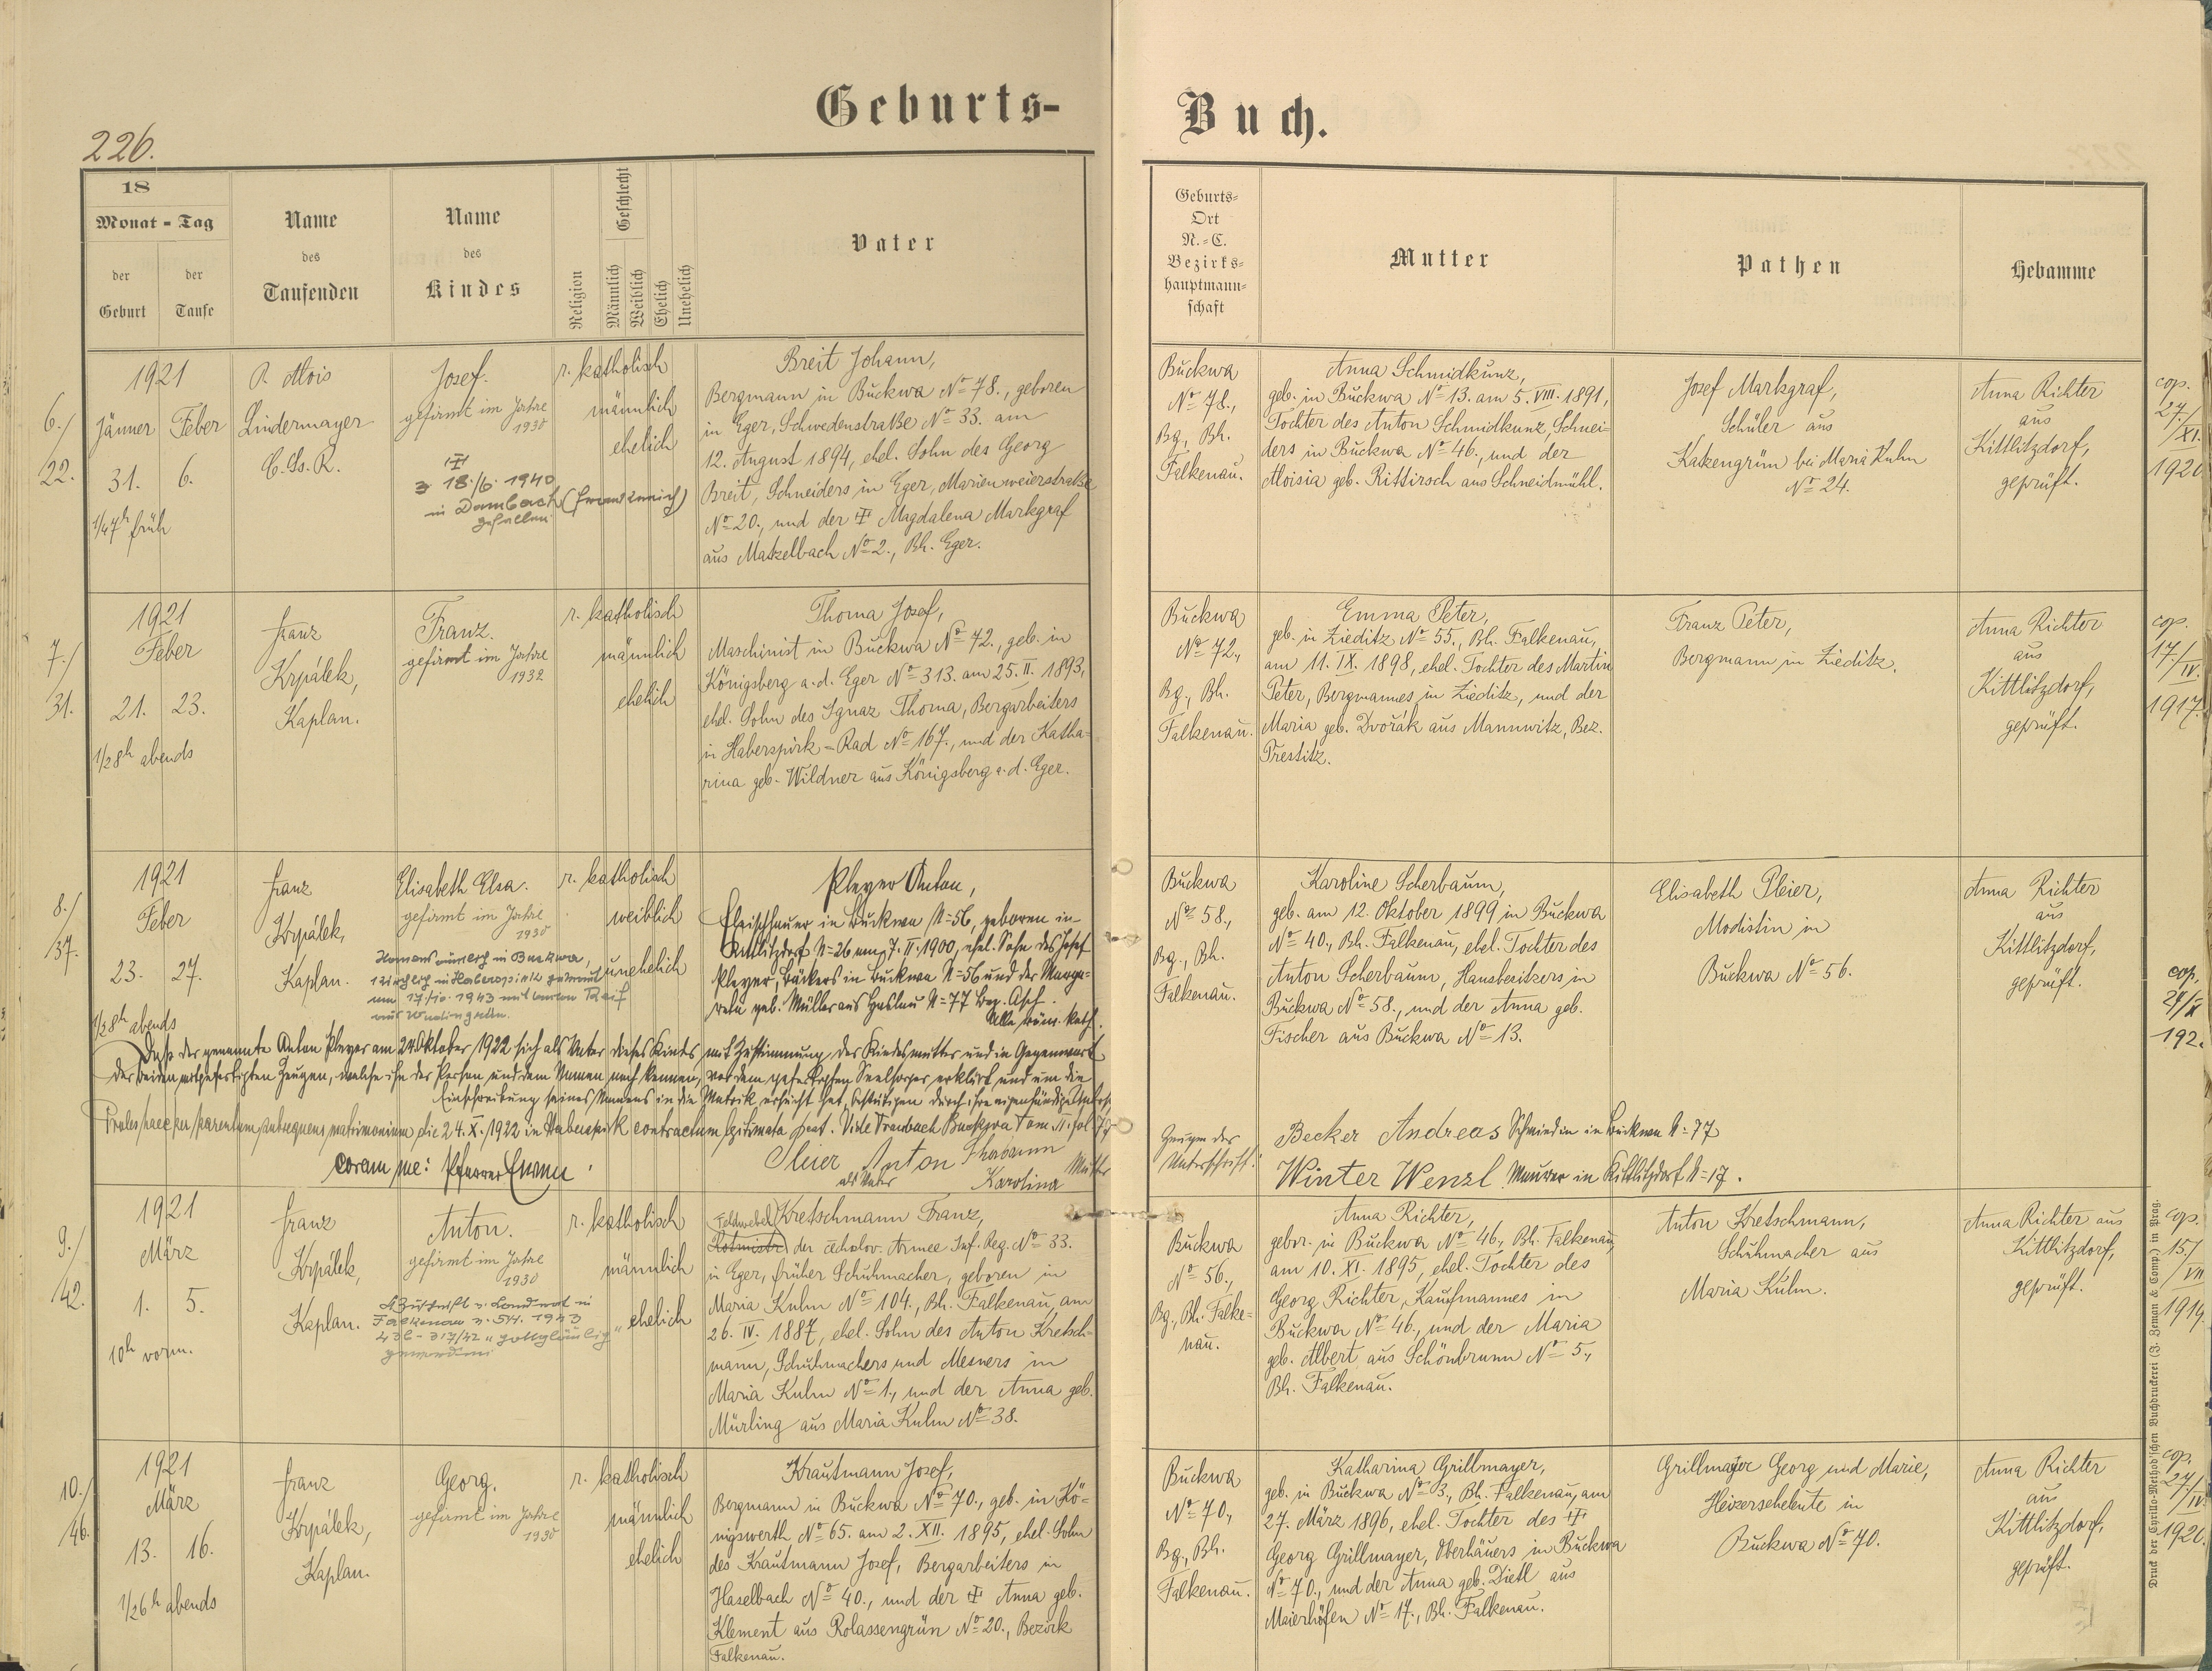 226.
Geburts-
Buch.
18
Monat - Tag
der Geburt
der Taufe
Name des Taufenden
Name des Kindes
Religion
Geschlecht
Männlich
Weiblich
Ehelich
Unehelich
Vater
Geburts-
Ort
N.-C.
Bezirks-
hauptmann-
schaft
Mutter
Pathen
Hebamme
6./
22.
1921
Jänner Feber
31. 6.
1/47h früh
P. Alois
Lindermayer
C. Ss. R.
Josef.
gefirmt im Jahre
1930
18./6. 1940
in Dambach (Frankreich)
gefallen
r. katholisch
männlich
ehelich
Breit Johann,
Bergmann in Buckwa No 78., geboren
in Eger, Schwedenstraße No 33. am
12. August 1894, ehel. Sohn des Georg
Breit, Schneiders in Eger, Marienweierstraße
No 20., und der Magdalena Markgraf
aus Matzelbach No 2., Bh. Eger.
Buckwa
No 78.,
Bg., Bh.
Falkenau.
Anna Schmidkunz,
geb. in Buckwa No 13. am 5. VIII. 1891,
Tochter des Anton Schmidkunz, Schnei=
ders in Buckwa No 46., und der
Aloisia geb. Rittirsch aus Schneidmühl.
Josef Markgraf,
Schüler aus
Katzengrün bei Maria Kulm
No 24.
Anna Richter
aus
Kittlitzdorf,
geprüft.
cop.
27./
XI.
1920
7./
31.
1921
Feber
21. 23.
1/28h abends
Franz
Krpálek,
Kaplan.
Franz.
gefirmt im Jahre
1932
r. katholisch
männlich
ehelich
Thoma Josef,
Maschinist in Buckwa No 72., geb. in
Königsberg a. d. Eger No 313. am 25. II. 1893,
ehel. Sohn des Ignaz Thoma, Bergarbeiters
in Haberspirk - Rad No 167., und der Katha=
rina geb. Wildner aus Königsberg a. d. Eger.
Buckwa
No 72.,
Bg., Bh.
Falkenau.
Emma Peter,
geb. in Zieditz No 55., Bh. Falkenau,
am 11. IX. 1898, ehel. Tochter des Martin
Peter, Bergmannes in Zieditz, und der
Maria geb. Dvořák aus Mannwitz, Bez.
Prestitz.
Franz Peter,
Bergmann in Zieditz.
Anna Richter
aus
Kittlitzdorf,
geprüft.
cop.
17/
IV.
1917.
8./
37.
1921
Feber
23. 27.
1/28h abends
Franz
Krpálek,
Kaplan.
Elisabeth Elsa.
gefirmt im Jahre
1930
in Buckwa,
kirchlich in Haberspirk getraut
am 17/10. 1943 mit Anton Reif
r. katholisch
weiblich
unehelich
Pleyer Anton,
Fleischhauer in Buckwa N=56, geboren in
Kittlitzdorf N=26 am 7. II. 1900, ehel. Sohn des Josef
Pleyer, Bäckers in Buckwa N=56 und der Marga=
reta geb. Müller aus Haslau N=77 Bez. Asch.
Alle röm. kath.
Daß der genannte Anton Pleyer am 24. Oktober 1922 sich als Vater dieses Kindes mit Zustimmung der Kindesmutter und in Gegenwart
der beiden mitgefertigten Zeugen, welche ihn der Person und dem Namen nach kennen, vor dem gefertigten Seelsorger erklärt und um die
Einschreibung seines Namens in die Matrik ersucht hat, bestätigen durch ihre eigenhändige
Proles haec per parentum subsequens matrimonium die 24. X. 1922 in Haberspirk contractum legitimata est. Vide Traubuch Buckwa Tom. II. fol. 79
coram me: Pfarrer
Pleier Anton
als Vater
Scherbaum
Karolina
Mutter
Buckwa
No 58.,
Bg., Bh.
Falkenau.
Karoline Scherbaum,
geb. am 12. Oktober 1899 in Buckwa
No 40., Bh. Falkenau, ehel. Tochter des
Anton Scherbaum, Hausbesitzers in
Buckwa No 58., und der Anna geb.
Fischer aus Buckwa No 13.
Elisabeth Pleier,
Modistin in
Buckwa No 56.
Anna Richter
aus
Kittlitzdorf,
geprüft.
cop.
24/X
192.
Zeugen der
Unterschrift:
Becker Andreas Schmied in Buckwa N=77
Winter Wenzl Maurer in Kittlitzdorf N=17.
9./
42.
1921
März
1. 5.
10h vorm.
Franz
Krpálek,
Kaplan.
Anton.
gefirmt im Jahre
1930
Zuschrift v. Landrat in
Falkenau v. 5/4. 1943
"gottgläubig"
geworden
r. katholisch
männlich
ehelich
Feldwebel Kretschmann Franz,
Rotmistr der čecholov. Armee Inf. Reg. No 33.
in Eger, früher Schuhmacher, geboren in
Maria Kulm No 104., Bh. Falkenau, am
26. IV. 1887, ehel. Sohn des Anton Kretsch=
mann, Schuhmachers und Mesners in
Maria Kulm No 1., und der Anna geb.
Mürling aus Maria Kulm No 38.
Buckwa
No 56.,
Bg., Bh. Falke=
nau.
Anna Richter,
gebor. in Buckwa No 46., Bh. Falkenau,
am 10. XI. 1895, ehel. Tochter des
Georg Richter, Kaufmannes in
Buckwa No 46., und der Maria
geb. Albert aus Schönbrunn No 5.,
Bh. Falkenau.
Anton Kretschmann,
Schuhmacher aus
Maria Kulm.
Anna Richter aus
Kittlitzdorf,
geprüft.
cop.
15./
VII
1919.
10./
46.
1921
März
13. 16.
1/26h abends
Franz
Krpálek,
Kaplan.
Georg.
gefirmt im Jahre
1930
r. katholisch
männlich
ehelich
Krautmann Josef,
Bergmann in Buckwa No 70., geb. in Kö=
nigswerth No 65. am 2. XII. 1895, ehel. Sohn
des Krautmann Josef, Bergarbeiters in
Haselbach No 40., und der Anna geb.
Klement aus Rolassengrün No 20., Bezirk
Falkenau.
Buckwa
No 70.,
Bg., Bh.
Falkenau.
Katharina Grillmayer,
geb. in Buckwa No 3., Bh. Falkenau, am
27. März 1896, ehel. Tochter des
Georg Grillmayer, Oberhäuers in Buckwa
No 70., und der Anna geb. Dietl aus
Maierhöfen No 17., Bh. Falkenau.
Grillmayer Georg und Marie,
Heizerseheleute in
Buckwa No 70.
Anna Richter
aus
Kittlitzdorf,
geprüft.
cop.
27/
IV.
1920.
Druck der Cyrillo-Method'schen Buchdruckerei (J. Zeman & Comp.) in Prag.